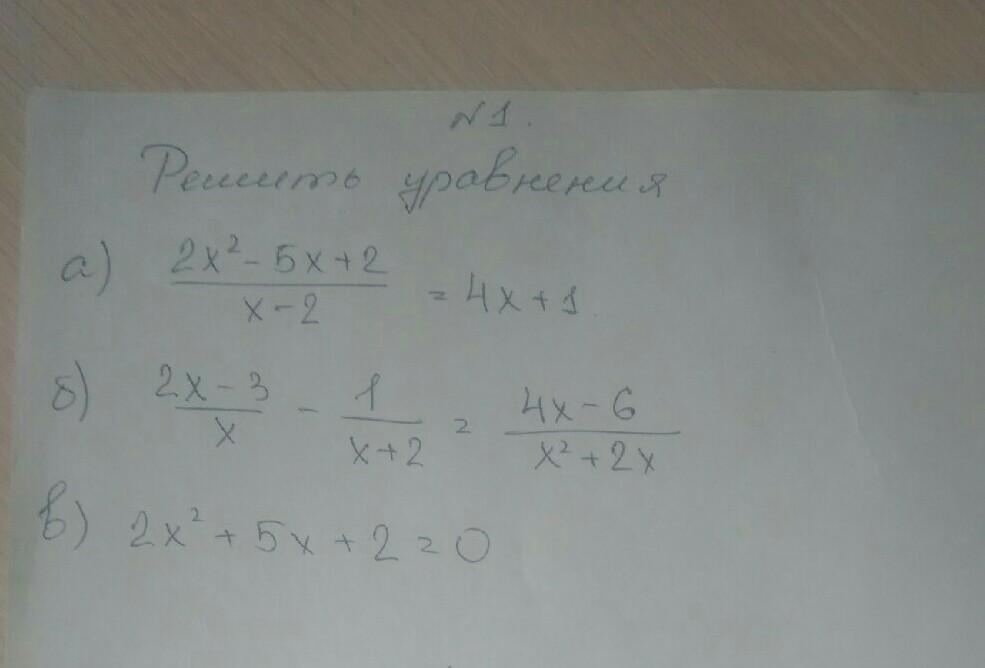 №1.
Решить уравнения
а) (2x² - 5x + 2)/(x - 2) = 4x + 1
б) (2x - 3)/x - 1/(x + 2) = (4x - 6)/(x² + 2x)
в) 2x² + 5x + 2 = 0